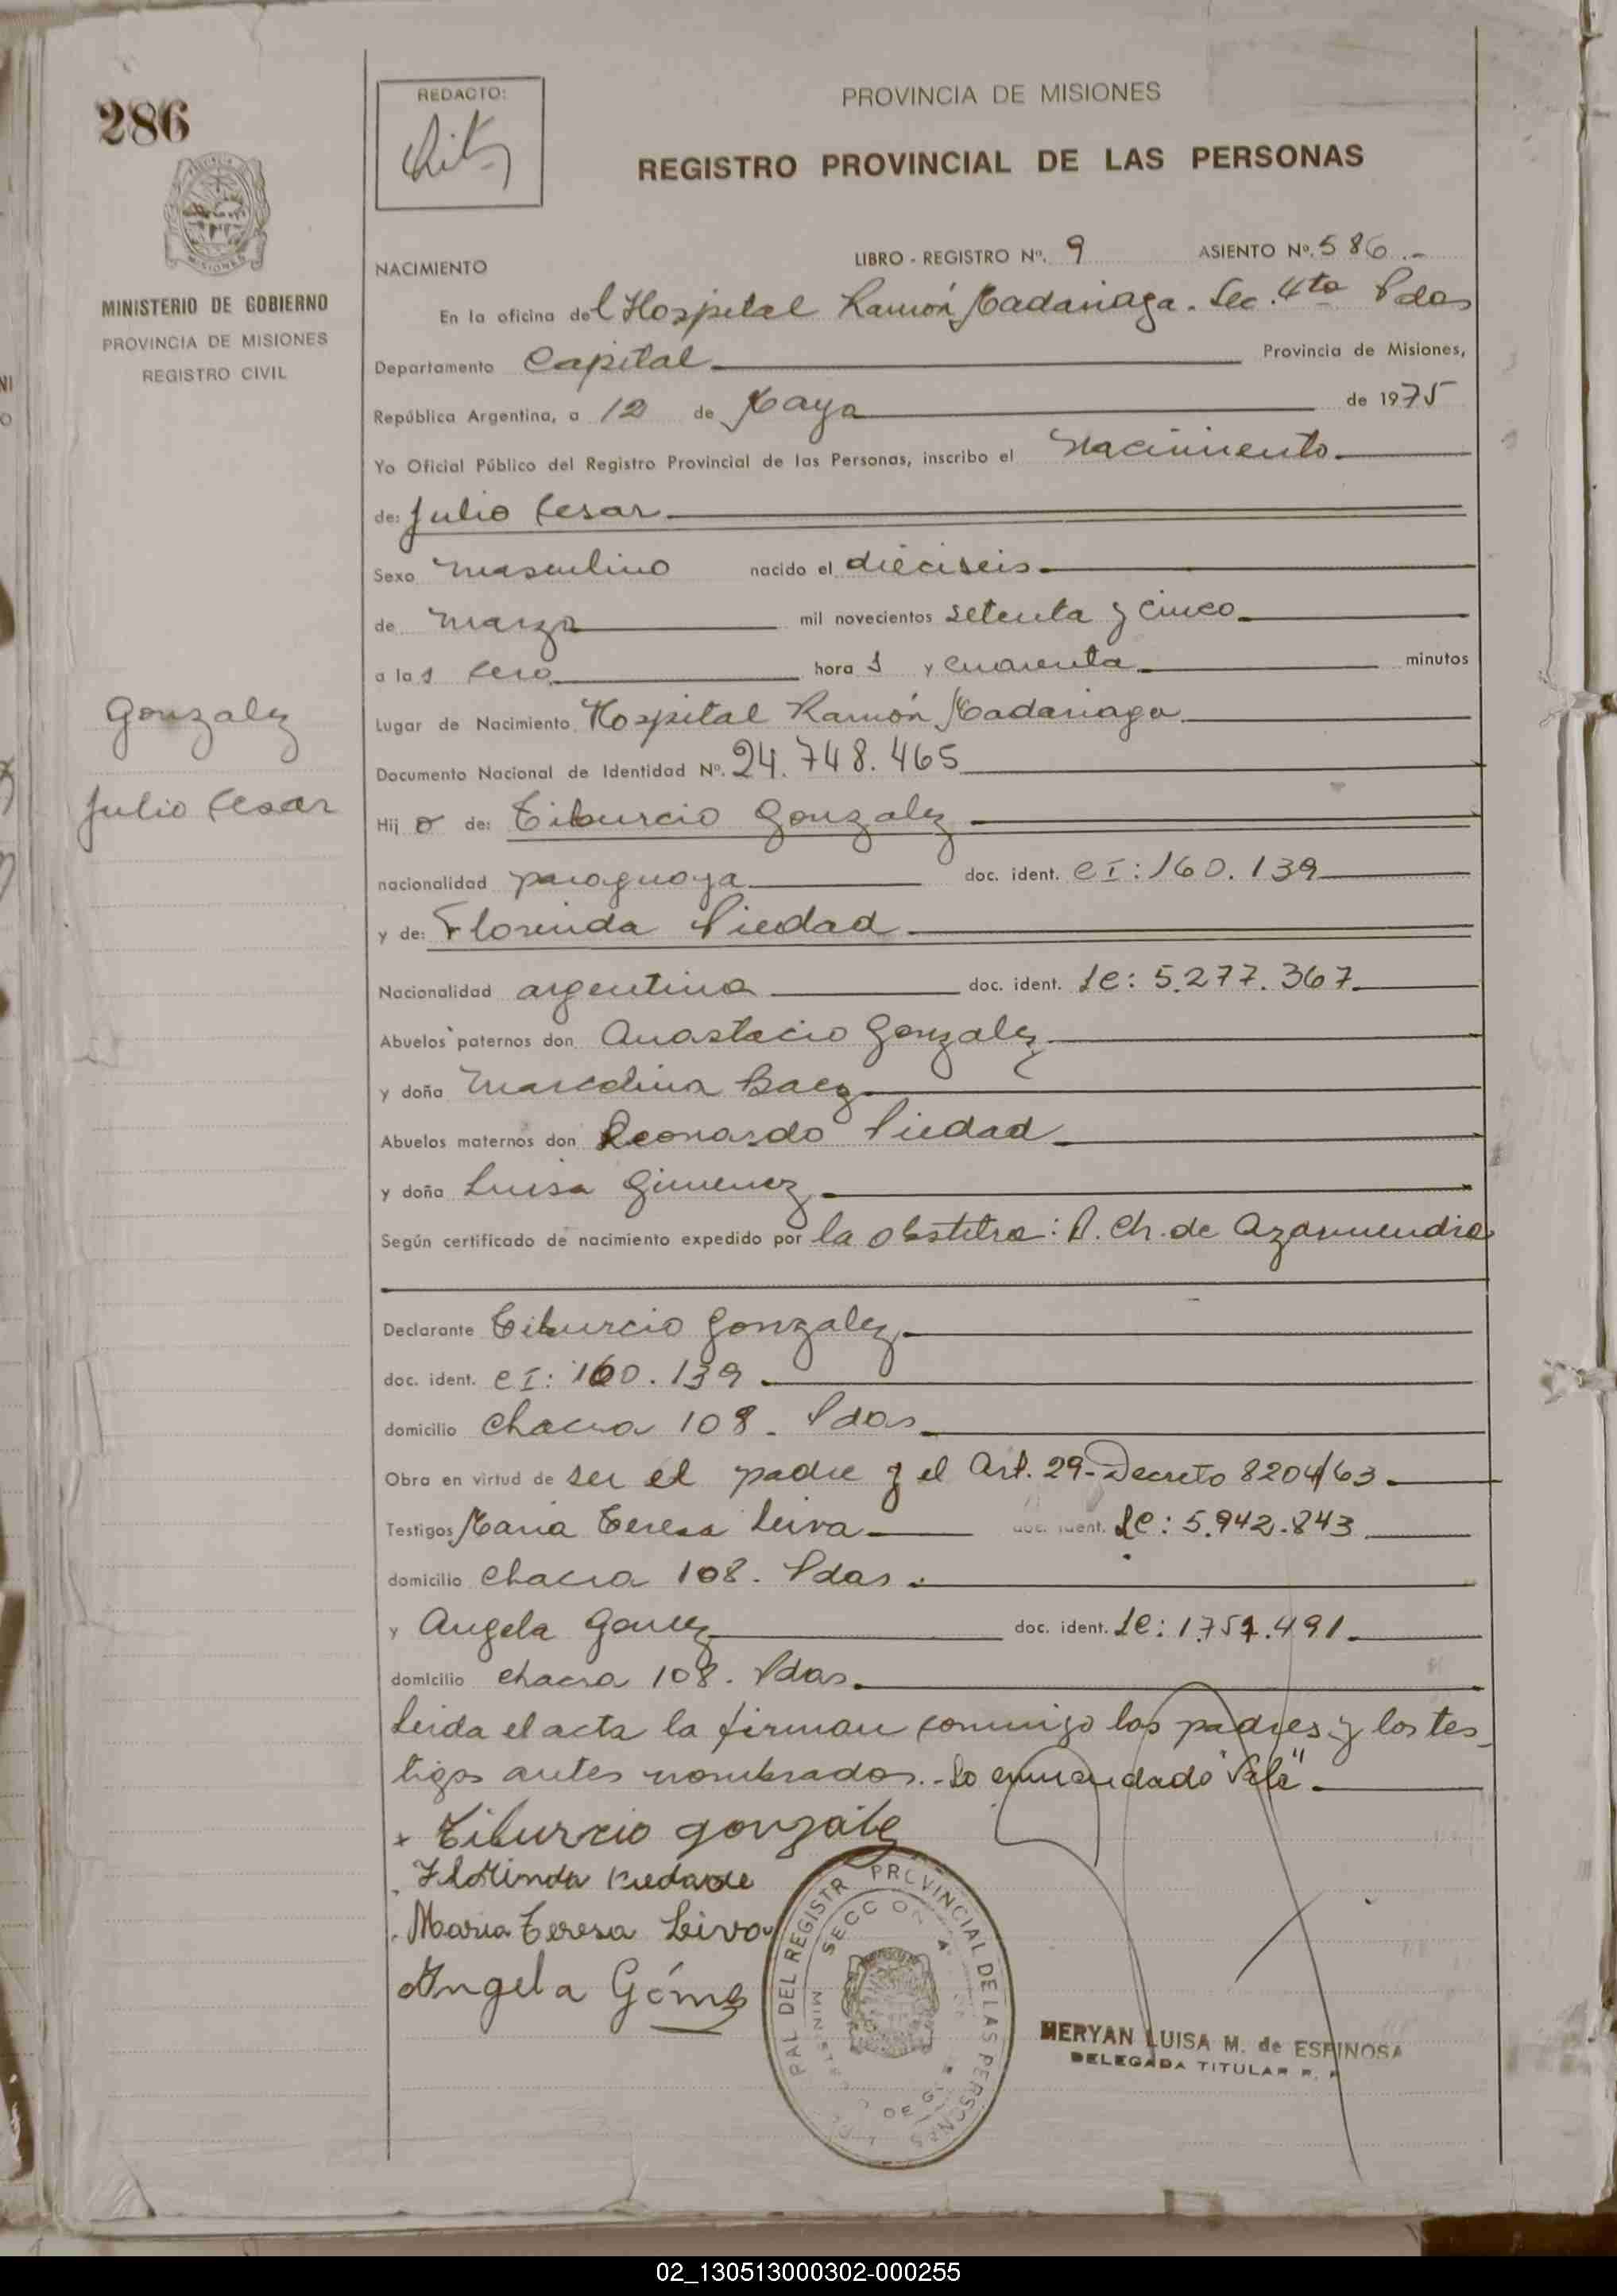 286
REDACTO:
PROVINCIA DE MISIONES
REGISTRO PROVINCIAL DE LAS PERSONAS
MISIONES
MINISTERIO DE GOBIERNO
PROVINCIA DE MISIONES
REGISTRO CIVIL
NACIMIENTO
LIBRO - REGISTRO Nº. 9 ASIENTO Nº. 586.-
En la oficina del Hospital Ramón Madariaga. Sec. 4ta Pdas
Departamento Capital Provincia de Misiones,
República Argentina, a 12 de Mayo de 1975
Yo Oficial Público del Registro Provincial de las Personas, inscribo el Nacimiento
de: Julio Cesar
Sexo masculino nacido el dieciseis
de marzo mil novecientos setenta y cinco
a las cero hora s y cuarenta minutos
Gonzalez
Julio Cesar
Lugar de Nacimiento Hospital Ramón Madariaga
Documento Nacional de Identidad Nº. 24.748.465
Hij o de: Tiburcio Gonzalez
nacionalidad paraguaya doc. ident. CI: 160.139
y de: Florinda Piedad
Nacionalidad argentina doc. ident. LC: 5.277.367
Abuelos paternos don Anastacio Gonzalez
y doña Marcelina Baez
Abuelos maternos don Leonardo Piedad
y doña Luisa Gimenez
Según certificado de nacimiento expedido por la obstetra: D. Ch. de Azarmendia
Declarante Tiburcio Gonzalez
doc. ident. CI: 160.139
domicilio Chacra 108. Pdas
Obra en virtud de ser el padre y el Art. 29-Decreto 8204/63
Testigos Maria Teresa Leiva doc. ident. LC: 5.942.843
domicilio Chacra 108. Pdas.
y Angela Gomez doc. ident. LC: 1.751.491
domicilio chacra 108. Pdas.
Leida el acta la firman conmigo los padres y los tes
tigos antes nombrados.- Lo enmendado "Vale".
Tiburcio gonzalez
Maria Teresa Leiva
Angela Gómez
PAL DEL REGISTR PROVINCIAL DE LAS PERSONAS
SECC ON
MERYAN LUISA M. de ESPINOSA
DELEGADA TITULAR R. P
02_130513000302-000255